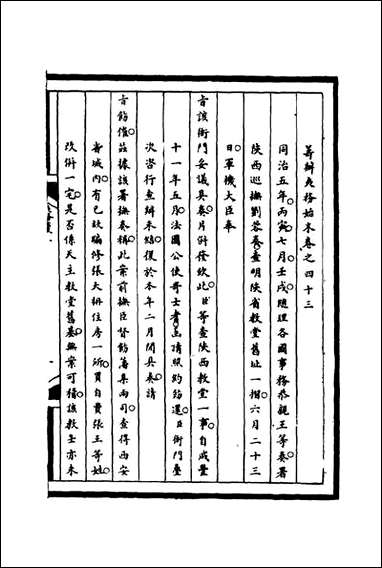 籌辦夷務始末卷之四十三
同治五年丙寅七月壬戌總理各國事務恭親王等奏署
陝西巡撫劉蓉奏查明陝省教堂舊址一摺六月二十三
日軍機大臣奉
旨該衙門妥議具奏片併發欽此臣等查陝西教堂一事自咸豐
十一年五月法國公使哥士耆函請照約給還臣衙門屢
次咨行查辦未結復於本年二月間具奏請
旨飭催茲據該署撫奏稱此案前撫臣督飭藩臬兩司查得西安
省城內有已故編修張大枏住房一所買自貢張王等姓
改術一宅是否係天主教堂舊基無案可稽該教士亦未